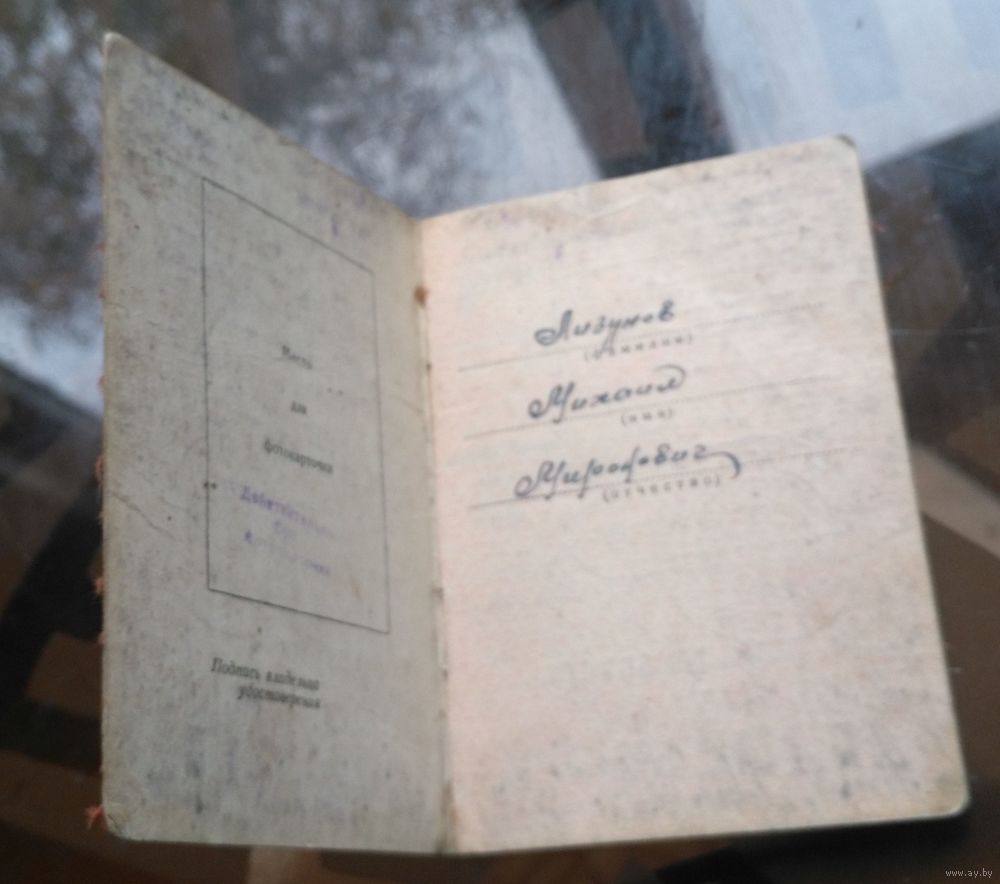 Место
для
фотокарточки
Действительно
без
Подпись владельца
удостоверения
Лизунов
(фамилия)
Михаил
(имя)
Миронович
(отчество)
www.ay.by